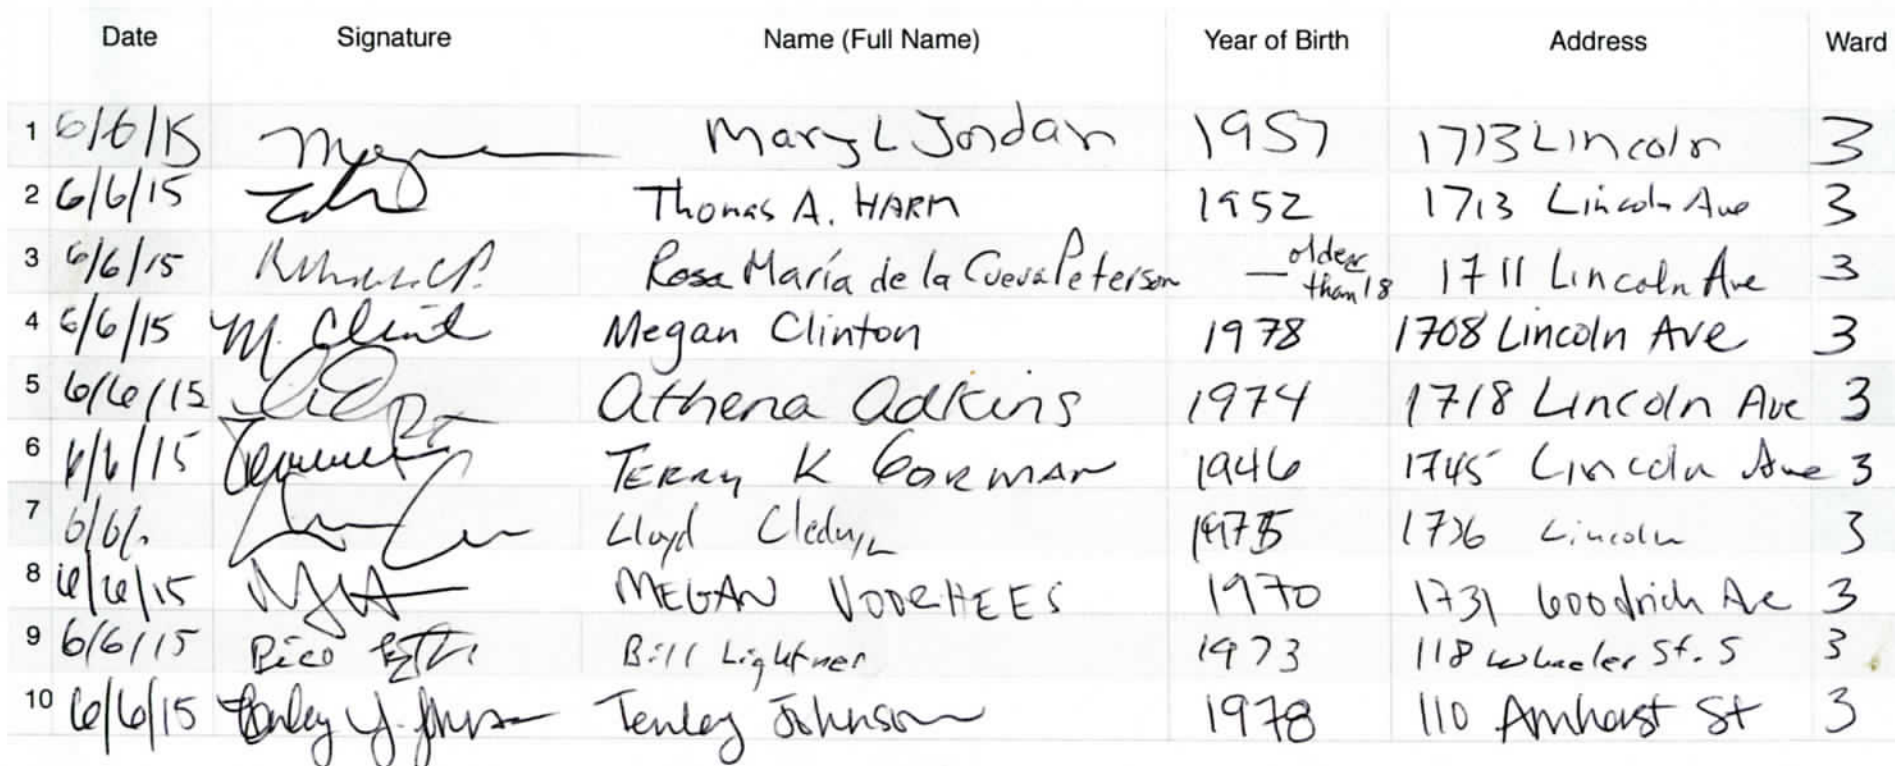 Date Signature Name (Full Name) Year of Birth Address Ward
1 6/6/15 Mary L Jordan 1957 1713 Lincoln 3
2 6/6/15 Thomas A. HARM 1952 1713 Lincoln Ave 3
3 6/6/15 Rosa María de la Cueva Peterson — older than 18 1711 Lincoln Ave 3
4 6/6/15 M. Clint Megan Clinton 1978 1708 Lincoln Ave 3
5 6/6/15 Athena Adkins 1974 1718 Lincoln Ave 3
6 6/6/15 TERRY K GORMAN 1946 1745 Lincoln Ave 3
7 6/6/. Lloyd 1975 1736 Lincoln 3
8 6/6/15 MEGAN VOORHEES 1970 1731 Goodrich Ave 3
9 6/6/15 Bill Lightner 1973 118 Wheeler St. S 3
10 6/6/15 Tenley Y. Johnson Tenley Johnson 1978 110 Amherst St 3